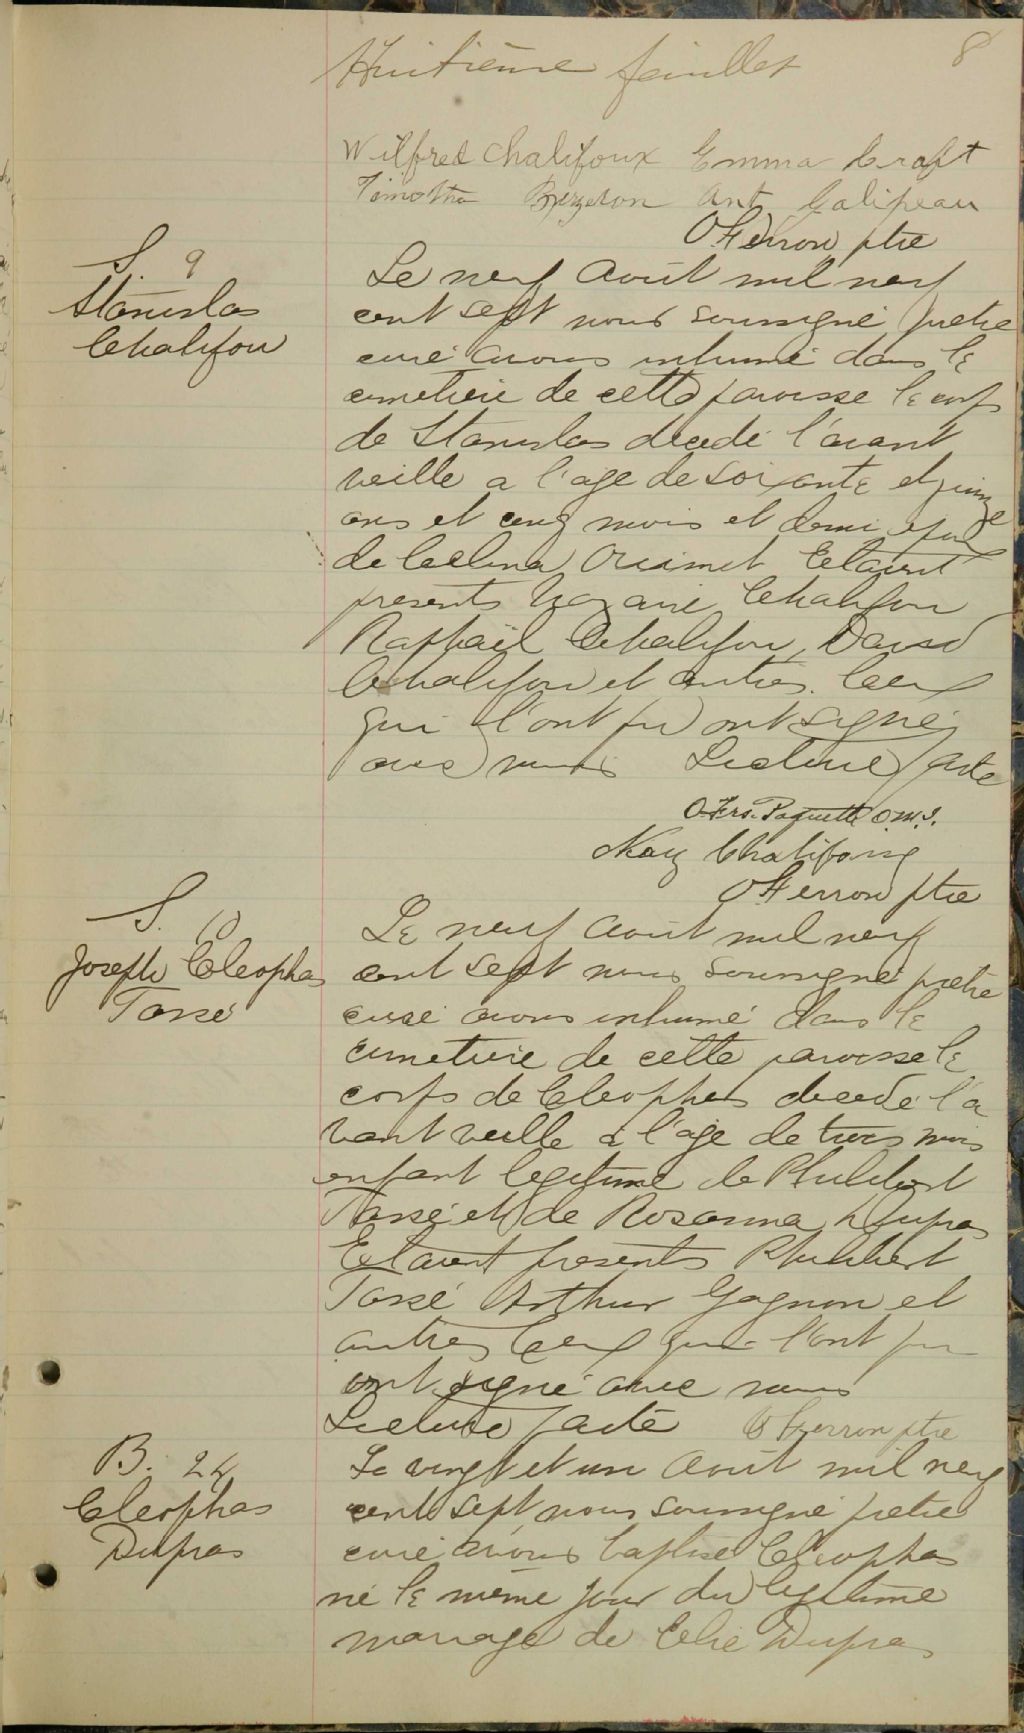 Huitième feuillet 8
Wilfred Chalifoux Emma Craft
Timothée Bergeron Ant Galipeau
O Ferron ptre
S. 9
Stanislas
Chalifou
Le neuf Août mil neuf
cent sept nous soussigné prêtre
curé avons inhumé dans le
cimetière de cette paroisse le corps
de Stanislas décédé l'avant
veille a l'age de soixante et quinze
ans et cinq mois et demi époux
de Celina Ouimet Etaient
presents Nazaire Chalifou
Raphaël Chalifou, David
Chalifou et autres. Ceux
qui l'ont pu ont signé
avec nous Lecture faite
O. Frs. Paquette O.M.I.
Naz Chalifoux
O Ferron ptre
S. 10
Joseph Cleophas
Tassé
Le neuf Août mil neuf
cent sept nous soussigné prêtre
curé avons inhumé dans le
cimetière de cette paroisse le
corps de Cleophas décédé l'a
vant veille à l'âge de trois mois
enfant legitime de Philibert
Tassé et de Rosanna Dupras
Etaient presents Philibert
Tassé Arthur Gagnon et
autres Ceux qui l'ont pu
ont signé avec nous
Lecture faite O Ferron ptre
B. 24
Cleophas
Dupras
Le vingt et un Août mil neuf
cent sept nous soussigné prêtre
curé avons baptisé Cleophas
né le même jour du legitime
mariage de Elie Dupras